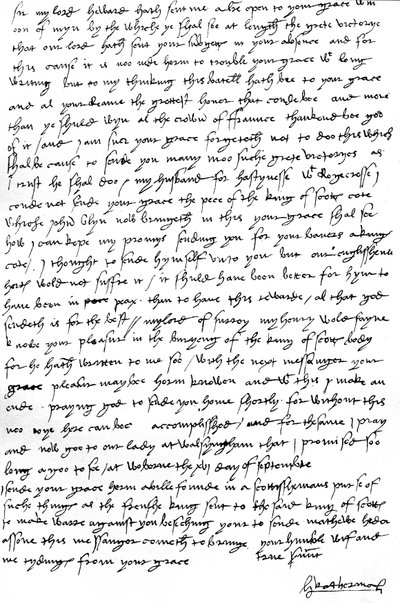 Sir my lord Havard hath sent me a lre open to your grace wtin
oon of myn by the whiche ye shal see at length the grete victorye
that our lord hath sent your subgetts in your absence and for
this cause it is noo nede herin to trouble your grace wt long
writing but to my thinking this batell hath bee to your grace
and al your reame the grettest honor that coude bee and more
than ye shuld wyn al the crown of ffraunce thankend bee god
of it / and I am suer your grace forgeteth not to doo this which
shal be cause to sende you many moo suche grete victoryes as
I trust he shal doo / my husband for hastynesse wt Rogecrosse I
coude not sende your grace the pece of the king of scotts cote
whiche John Glyn now bringeth in this your grace shal see
how I can kepe my promys sending you for your baners a kings
cote / I thought to sende hymself unto you but our englisshemens
herts wold not suffre it / it shuld have been better for hym to
have been in peax than to have this rewarde / al that god
sendeth is for the best // my lord of surrey my henry wold fayne
knowe your pleasur in the buryeng of the king of scotts body
for he hath written to me soo / with the next messanger your
grace pleasur may bee herin knowen and wt this I make an
ende praying god to sende you home shortly for without this
noo joye here can bee accomplisshed / and for the same I pray
and now goo to our lady at walsyngham that I promised soo
long agoo to see / at woborne the xvj day of septembre
I sende your grace herin a bille founde in a scottisshemans purse of
suche things as the frenshe king sent to the said king of scotts
to make warre against you beseching you to sende mathewe heder
assone this messanger cometh to bringe
me tydings from your grace
your humble wif and
true servant
Katherina